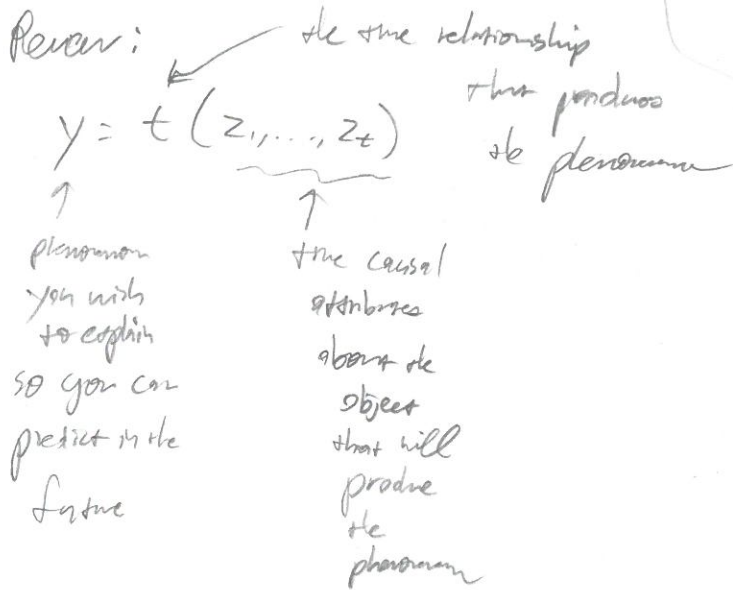 Review:
the true relationship
that produces
the phenomenon
y = t(z1, ..., zt)
phenomenon
you wish
to explain
so you can
predict in the
future
true causal
attributes
about the
object
that will
produce
the
phenomenon